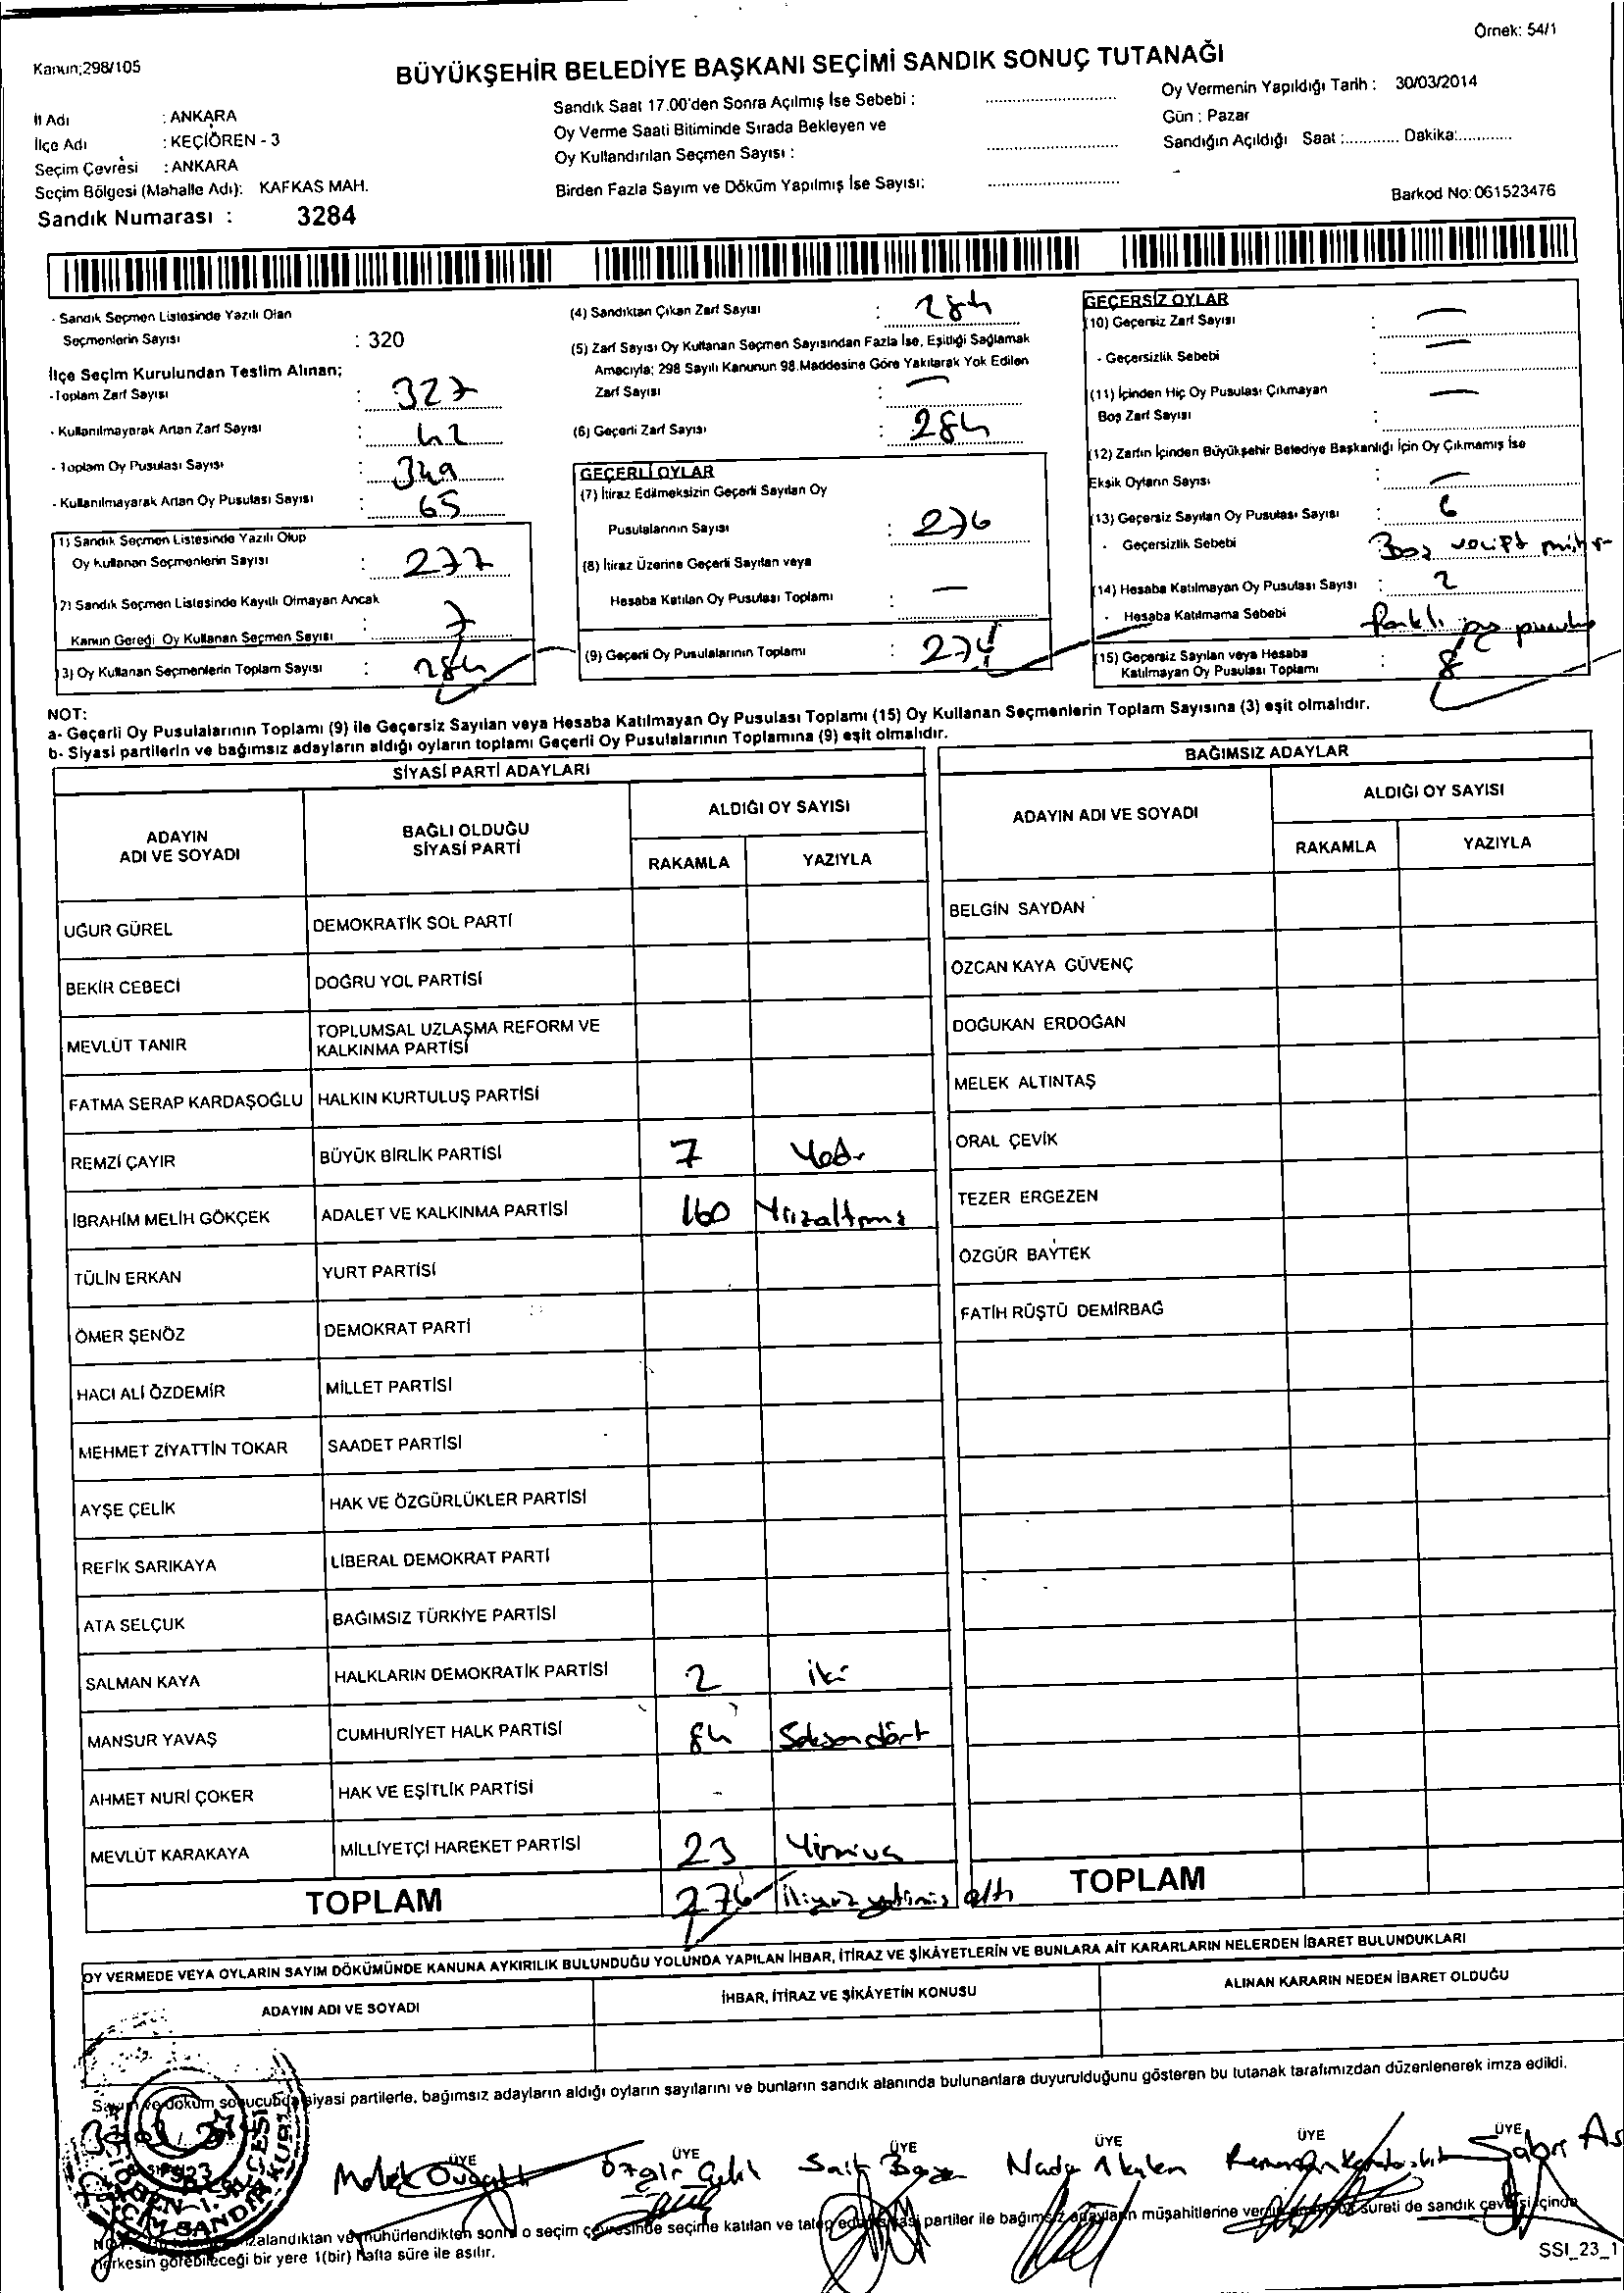 Örnek: 54/1
Kanun;298/105
BÜYÜKŞEHİR BELEDİYE BAŞKANI SEÇİMİ SANDIK SONUÇ TUTANAĞI
İl Adı : ANKARA
İlçe Adı : KEÇİÖREN - 3
Seçim Çevresi : ANKARA
Seçim Bölgesi (Mahalle Adı): KAFKAS MAH.
Sandık Numarası : 3284
Sandık Saat 17.00'den Sonra Açılmış İse Sebebi :
Oy Verme Saati Bitiminde Sırada Bekleyen ve
Oy Kullandırılan Seçmen Sayısı :
Birden Fazla Sayım ve Döküm Yapılmış İse Sayısı:
Oy Vermenin Yapıldığı Tarih : 30/03/2014
Gün : Pazar
Sandığın Açıldığı Saat :............ Dakika:............
Barkod No: 061523476
- Sandık Seçmen Listesinde Yazılı Olan
Seçmenlerin Sayısı : 320
İlçe Seçim Kurulundan Teslim Alınan;
- Toplam Zarf Sayısı : 327
- Kullanılmayarak Artan Zarf Sayısı : 42
- Toplam Oy Pusulası Sayısı : 349
- Kullanılmayarak Artan Oy Pusulası Sayısı : 65
1) Sandık Seçmen Listesinde Yazılı Olup
Oy Kullanan Seçmenlerin Sayısı : 277
2) Sandık Seçmen Listesinde Kayıtlı Olmayan Ancak
Kanun Gereği Oy Kullanan Seçmen Sayısı : 7
3) Oy Kullanan Seçmenlerin Toplam Sayısı : 284
(4) Sandıktan Çıkan Zarf Sayısı : 284
(5) Zarf Sayısı Oy Kullanan Seçmen Sayısından Fazla İse, Eşitliği Sağlamak
Amacıyla; 298 Sayılı Kanunun 98.Maddesine Göre Yakılarak Yok Edilen
Zarf Sayısı : —
(6) Geçerli Zarf Sayısı : 284
GEÇERLİ OYLAR
(7) İtiraz Edilmeksizin Geçerli Sayılan Oy
Pusulalarının Sayısı : 276
(8) İtiraz Üzerine Geçerli Sayılan veya
Hesaba Katılan Oy Pusulası Toplamı : —
(9) Geçerli Oy Pusulalarının Toplamı :
GEÇERSİZ OYLAR
(10) Geçersiz Zarf Sayısı : —
- Geçersizlik Sebebi : —
(11) İçinden Hiç Oy Pusulası Çıkmayan
Boş Zarf Sayısı : —
(12) Zarfın İçinden Büyükşehir Belediye Başkanlığı İçin Oy Çıkmamış İse
Eksik Oyların Sayısı : —
(13) Geçersiz Sayılan Oy Pusulası Sayısı : 6
- Geçersizlik Sebebi
(14) Hesaba Katılmayan Oy Pusulası Sayısı : 2
- Hesaba Katılmama Sebebi
(15) Geçersiz Sayılan veya Hesaba
Katılmayan Oy Pusulası Toplamı : 8
NOT:
a- Geçerli Oy Pusulalarının Toplamı (9) ile Geçersiz Sayılan veya Hesaba Katılmayan Oy Pusulası Toplamı (15) Oy Kullanan Seçmenlerin Toplam Sayısına (3) eşit olmalıdır.
b- Siyasi partilerin ve bağımsız adayların aldığı oyların toplamı Geçerli Oy Pusulalarının Toplamına (9) eşit olmalıdır.
SİYASİ PARTİ ADAYLARI
ADAYIN
ADI VE SOYADI
BAĞLI OLDUĞU
SİYASİ PARTİ
ALDIĞI OY SAYISI
RAKAMLA YAZIYLA
UĞUR GÜREL DEMOKRATİK SOL PARTİ
BEKİR CEBECİ DOĞRU YOL PARTİSİ
MEVLÜT TANIR TOPLUMSAL UZLAŞMA REFORM VE
KALKINMA PARTİSİ
FATMA SERAP KARDAŞOĞLU HALKIN KURTULUŞ PARTİSİ
REMZİ ÇAYIR BÜYÜK BİRLİK PARTİSİ 7 Yedi
İBRAHİM MELİH GÖKÇEK ADALET VE KALKINMA PARTİSİ 160 Yüzaltmış
TÜLİN ERKAN YURT PARTİSİ
ÖMER ŞENÖZ DEMOKRAT PARTİ
HACI ALİ ÖZDEMİR MİLLET PARTİSİ
MEHMET ZİYATTİN TOKAR SAADET PARTİSİ
AYŞE ÇELİK HAK VE ÖZGÜRLÜKLER PARTİSİ
REFİK SARIKAYA LİBERAL DEMOKRAT PARTİ
ATA SELÇUK BAĞIMSIZ TÜRKİYE PARTİSİ
SALMAN KAYA HALKLARIN DEMOKRATİK PARTİSİ 2 iki
MANSUR YAVAŞ CUMHURİYET HALK PARTİSİ 84 Seksendört
AHMET NURİ ÇOKER HAK VE EŞİTLİK PARTİSİ -
MEVLÜT KARAKAYA MİLLİYETÇİ HAREKET PARTİSİ 23 Yirmiüç
TOPLAM 276 İkiyüz yetmiş altı
BAĞIMSIZ ADAYLAR
ADAYIN ADI VE SOYADI
ALDIĞI OY SAYISI
RAKAMLA YAZIYLA
BELGİN SAYDAN
ÖZCAN KAYA GÜVENÇ
DOĞUKAN ERDOĞAN
MELEK ALTINTAŞ
ORAL ÇEVİK
TEZER ERGEZEN
ÖZGÜR BAYTEK
FATİH RÜŞTÜ DEMİRBAĞ
TOPLAM
OY VERMEDE VEYA OYLARIN SAYIM DÖKÜMÜNDE KANUNA AYKIRILIK BULUNDUĞU YOLUNDA YAPILAN İHBAR, İTİRAZ VE ŞİKÂYETLERİN VE BUNLARA AİT KARARLARIN NELERDEN İBARET BULUNDUKLARI
ADAYIN ADI VE SOYADI İHBAR, İTİRAZ VE ŞİKÂYETİN KONUSU ALINAN KARARIN NEDEN İBARET OLDUĞU
Sayım ve döküm sonucunda siyasi partilerle, bağımsız adayların aldığı oyların sayılarını ve bunların sandık alanında bulunanlara duyurulduğunu gösteren bu tutanak tarafımızdan düzenlenerek imza edildi.
ÜYE ÜYE ÜYE ÜYE ÜYE ÜYE
Melek Özgür Çelik Sait
imzalandıktan ve mühürlendikten sonra o seçim çevresinde seçime katılan ve talep eden siyasi partiler ile bağımsız adayların müşahitlerine sureti de sandık çevresi içinde
herkesin görebileceği bir yere 1(bir) hafta süre ile asılır.
SSI_23_1